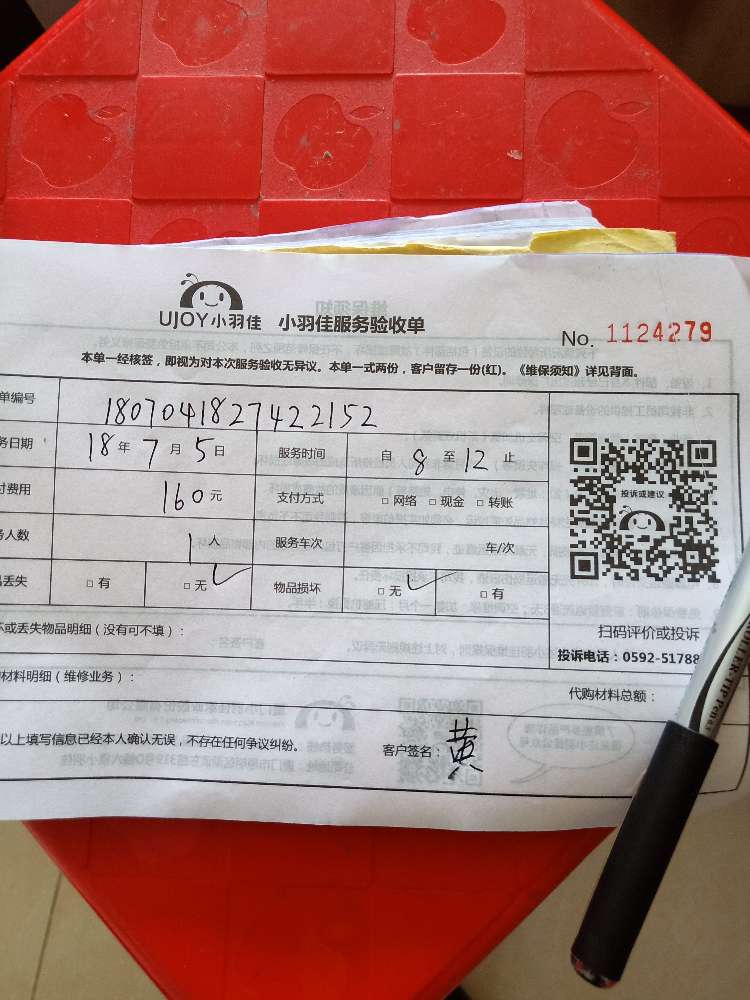 UJOY小羽佳 小羽佳服务验收单
No. 1124279
本单一经核签，即视为对本次服务验收无异议。本单一式两份，客户留存一份(红)。《维保须知》详见背面。
单编号 1807041827422152
务日期 18年 7月 5日 服务时间 自 8 至 12 止
付费用 160元 支付方式 □网络 □现金 □转账
务人数 1人 服务车次 车/次
丢失 □有 □无 ✓ 物品损坏 □无 ✓ □有
投诉或建议
扫码评价或投诉
投诉电话：0592-51788
坏或丢失物品明细（没有可不填）：
材料明细（维修业务）： 代购材料总额：
以上填写信息已经本人确认无误，不存在任何争议纠纷。 客户签名： 黄